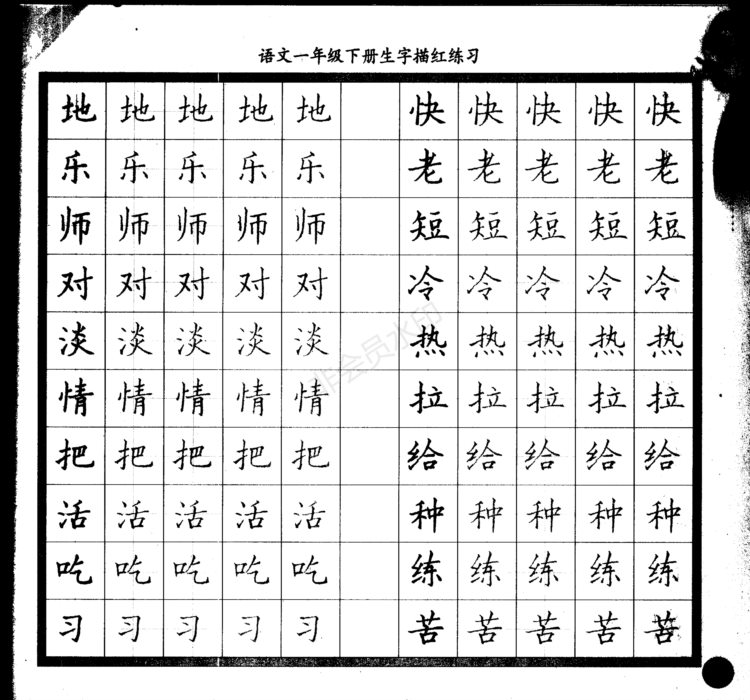 语文一年级下册生字描红练习
地 地 地 地 地 快 快 快 快 快
乐 乐 乐 乐 乐 老 老 老 老 老
师 师 师 师 师 短 短 短 短 短
对 对 对 对 对 冷 冷 冷 冷 冷
淡 淡 淡 淡 淡 热 热 热 热 热
情 情 情 情 情 拉 拉 拉 拉 拉
把 把 把 把 把 给 给 给 给 给
活 活 活 活 活 种 种 种 种 种
吃 吃 吃 吃 吃 练 练 练 练 练
习 习 习 习 习 苦 苦 苦 苦 苦
非会员水印